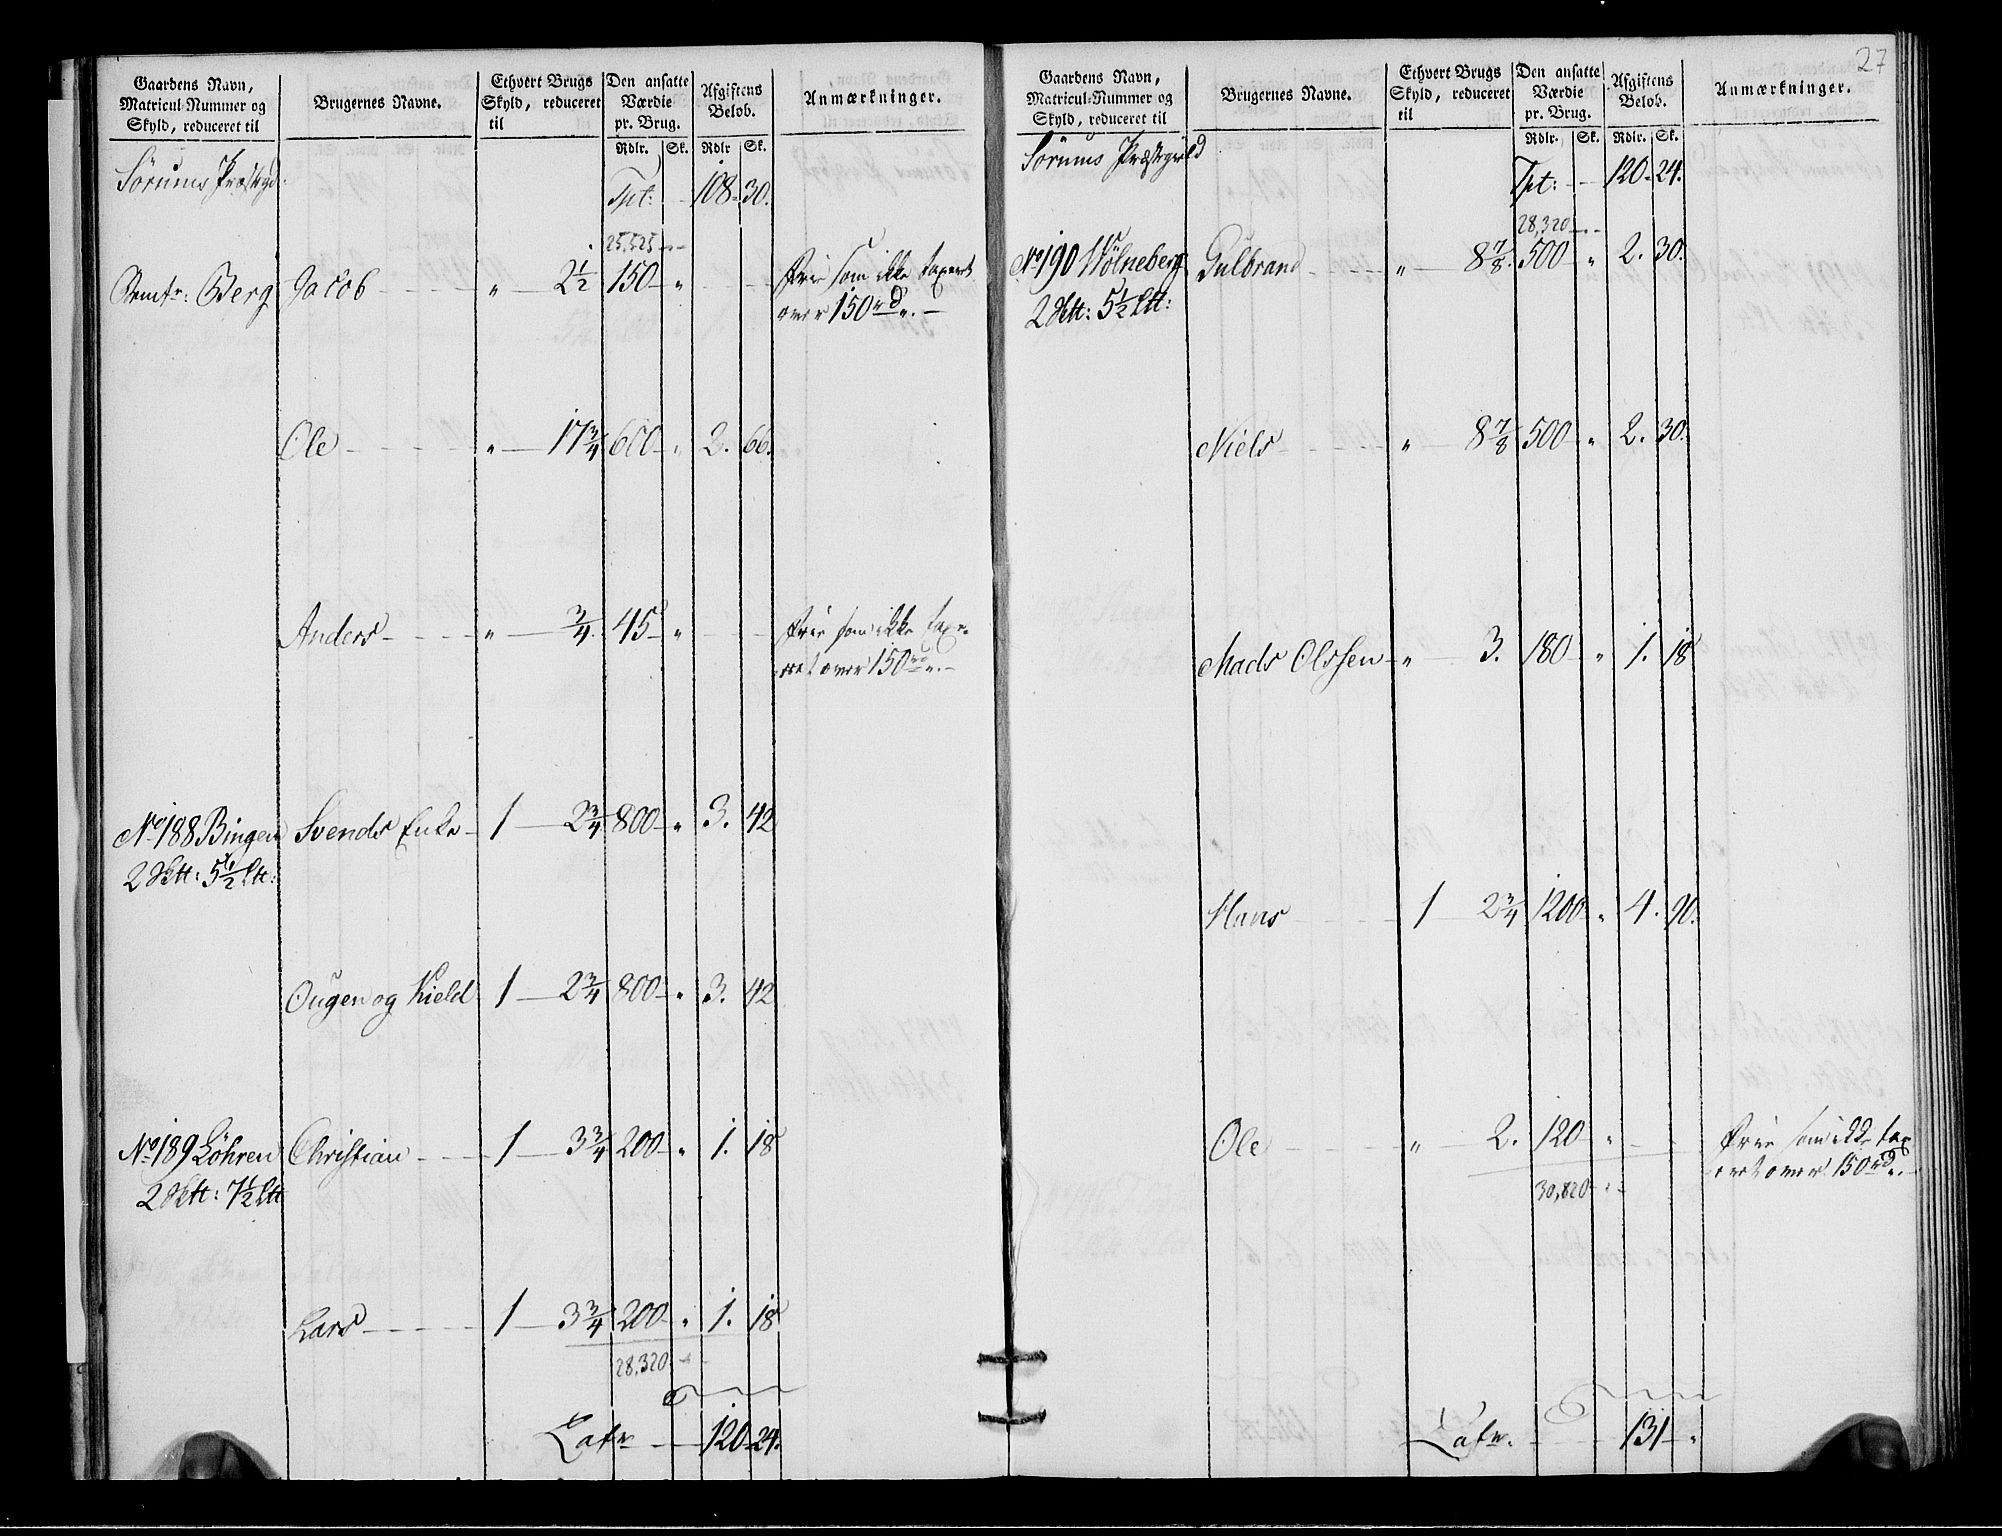 Gaardens Navn,
Matricul-Nummer og
Skyld, reduceret til
Brugernes Navne.
Ethvert Brugs
Skyld, reduceret
til
Den ansatte
Værdie
pr. Brug.
Afgiftens
Belob.
Anmærkninger.
Rdlr. Sk. Rdlr Sk.
Sørums Præstegd.
Tpt: - 108 - 30.
25,525 - -
Berg Jacob - - - " - 2 1/2 150 - " - - frie som ikke taxeret
over 150 rd. -
Ole - - - " - 17 3/4 600 - " 2. 66.
Anders - - - " - 3/4. 45 - " - - frie som ikke taxe-
ret over 150 rd. -
No 188 Bingen Svends Enke - 1 - 2 3/4 800 - " 3. 42
2 Sktt: 5 1/2 Ltt:
Ougen og Kield 1 - 2 3/4 800 - " 3. 42
No 189 Löhren Christian - - - 1 - 3 3/4 200 - " 1. 18
2 Sktt: 7 1/2 Ltt
Lars - - - 1 - 3 3/4 200 - " 1. 18
28,320 - -
Latr - 120 - 24.
27
Gaardens Navn,
Matricul-Nummer og
Skyld, reduceret til
Brugernes Navne.
Ethvert Brugs
Skyld, reduceret
til
Den ansatte
Værdie
pr. Brug.
Afgiftens
Belob.
Anmærkninger.
Rdlr. Sk. Rdlr. Sk.
Sørums Præstegield
Tpt: - - 120 - 24.
28,320 - -
No 190 Wölneberg Gulbrand - - - " - 8 7/8. 500 " 2. 30.
2 Sktt: 5 1/2 Ltt:
Niels - - - " - 8 7/8 500 " 2. 30.
Mads Olssen - " - 3. 180 - " 1. 18
Hans - - - 1 - 2 3/4 1200 - " 4. 90.
Ole - - - " - 2. 120 - " - - frie som ikke tax
eret over 150 rd. -
30,820 - " -
Latr. - - - 131 - "